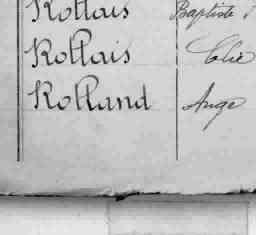 Rollais Baptiste
Rollais Elie
Rolland Ange